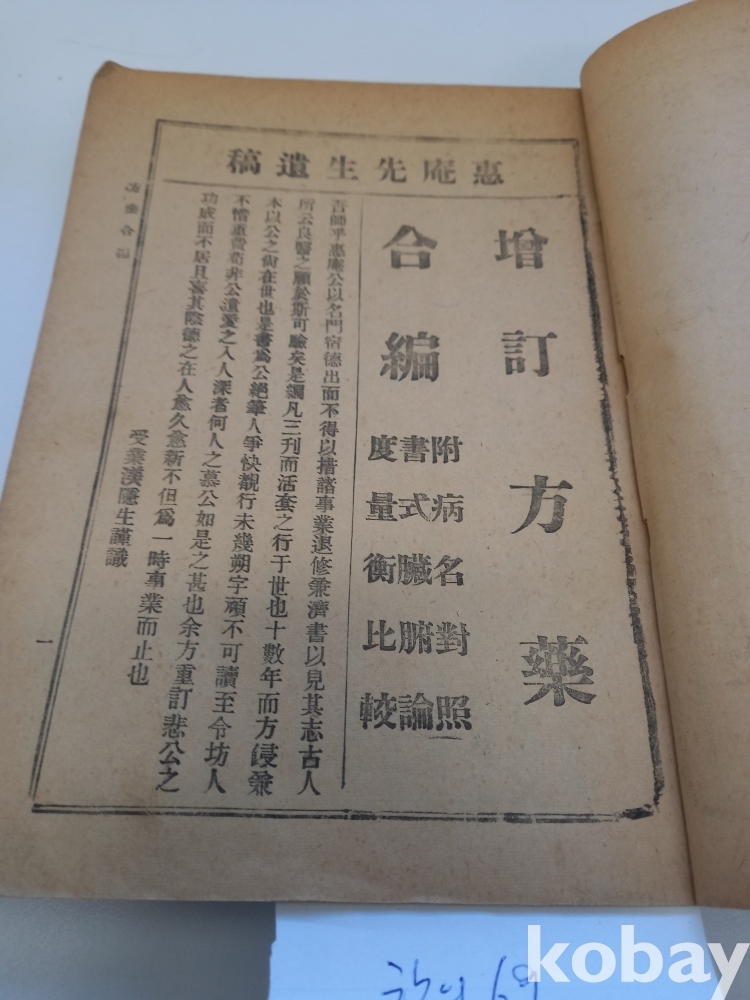 惠庵先生遺稿
增訂方藥
合編
附病名對照
書式臟腑論
度量衡比較
吾師乎惠庵公以名門宿德出而不得以措諸事業退修兼濟書以見其志古人
所云良醫之願於斯可驗矣是編凡三刊而活套之行于世也十數年而方侵兼
本以公之尙在世也是書爲公絕筆人爭快覩行未幾朔字頑不可讀至令坊人
不惜重費苟非公遺愛之入人深者何人之慕公如是之甚也余方重訂悲公之
功成而不居且喜其陰德之在人愈久愈新不但爲一時事業而止也
受業漢隱生謹識
方藥合編
一
kobay